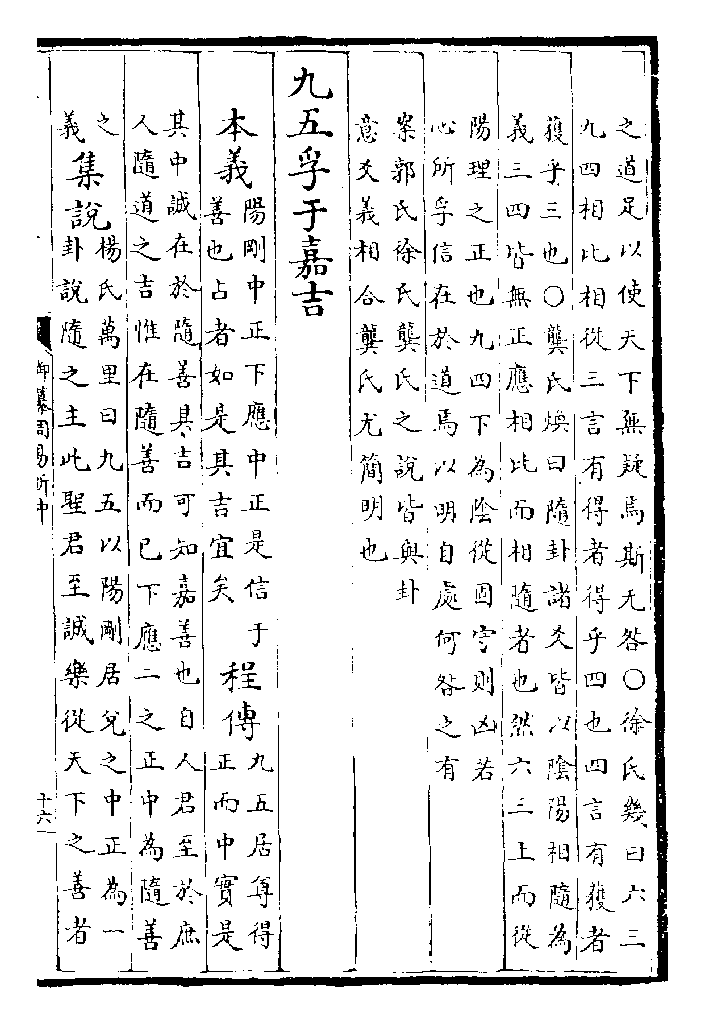 之道足以使天下無疑焉斯无咎〇徐氏幾曰六三
九四相比相從三言有得者得乎四也四言有獲者
獲乎三也〇龔氏煥曰隨卦諸爻皆以陰陽相隨為
義三四皆無正應相比而相隨者也然六三上而從
陽理之正也九四下為陰從固守則凶若
心所孚信在於道焉以明自處何咎之有
案郭氏徐氏龔氏之說皆與卦
意爻義相合龔氏尤簡明也
九五孚于嘉吉
本義
陽剛中正下應中正是信于
善也占者如是其吉宜矣
程傳
九五居尊得
正而中實是
其中誠在於隨善其吉可知嘉善也自人君至於庶
人隨道之吉惟在隨善而已下應二之正中為隨善
之
義
集說
楊氏萬里曰九五以陽剛居兌之中正為一
卦說隨之主此聖君至誠樂從天下之善者
御纂周易折中
十六